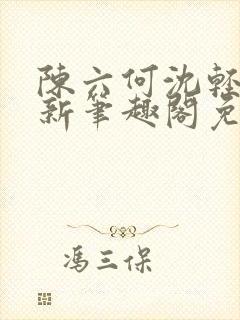 陳六何沈輕
新筆趣閣免
馮三保